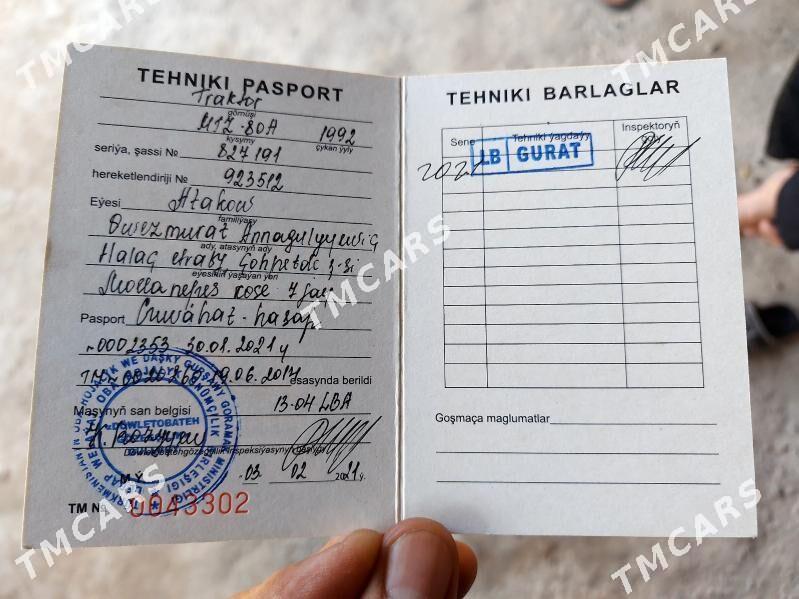 TEHNIKI PASPORT
Traktor
görnüşi
MTZ-80A 1992
kysymy çykan ýyly
seriýa, şassi № 827191
hereketlendiriji № 923512
Eýesi Atakow
familiýasy
Öwezmurat Annagulyýewiç
ady, atasynyň ady
Halaç etraby
eýesiniň ýaşaýan ýeri
Mollanepes köçe 7 jaý
Pasport hasap
0002353 30.01.2021 ý
19.06.2017 esasynda berildi
Maşynyň san belgisi 13-04 LBA
DÖWLETOBATEH
03 02 2021 ý.
TM № 0043302
TEHNIKI BARLAGLAR
Sene Tehniki ýagdaýy Inspektoryň
2021 LB GURAT
Goşmaça maglumatlar
TMCARS
TMCARS
TMCARS
TMCARS
TMCARS
TMCARS
TMCARS